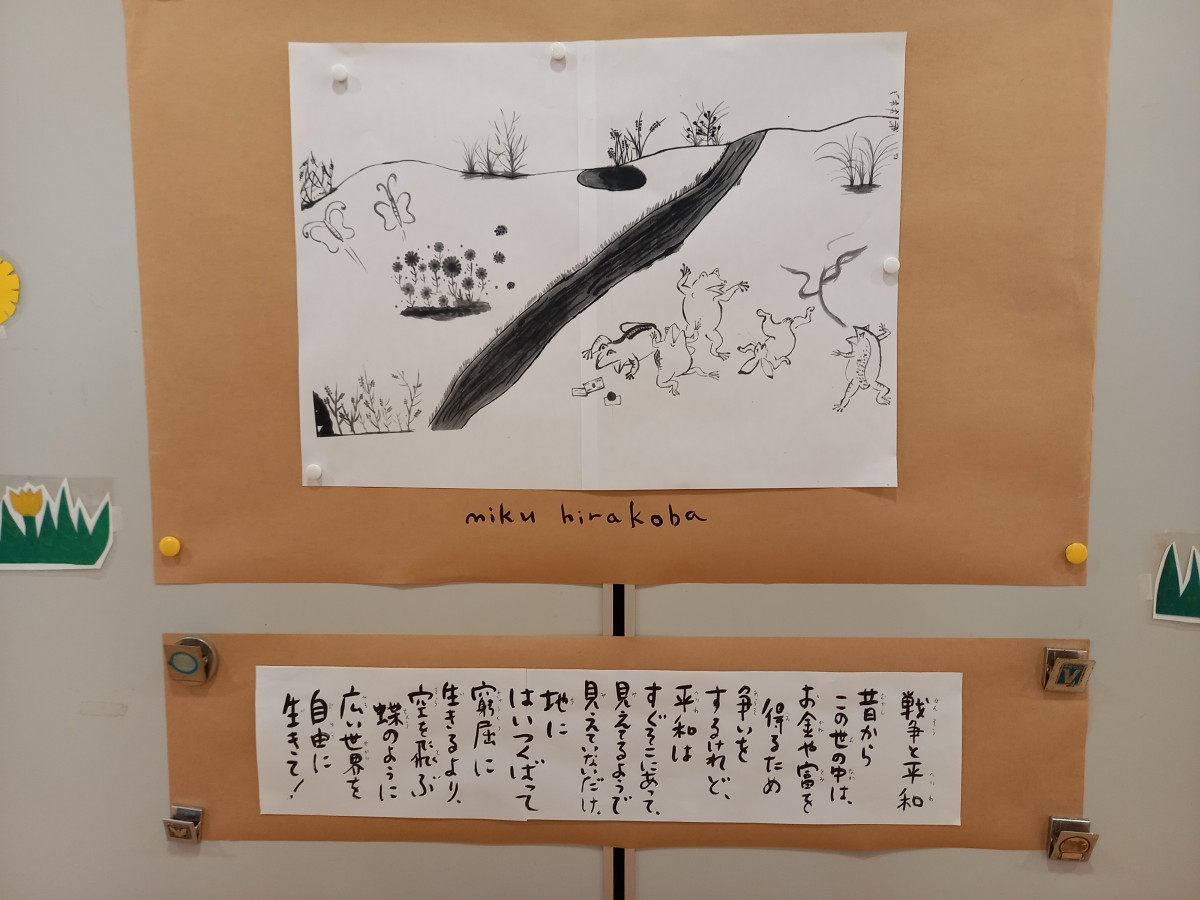 miku hirakoba
戦争と平和
昔から
この世の中は、
お金や富を
得るため
争いを
するけれど、
平和は
すぐそこにあって、
見えてるようで
見えていないだけ。
地に
はいつくばって
窮屈に
生きるより、
空を飛ぶ
蝶のように
広い世界を
自由に
生きて！